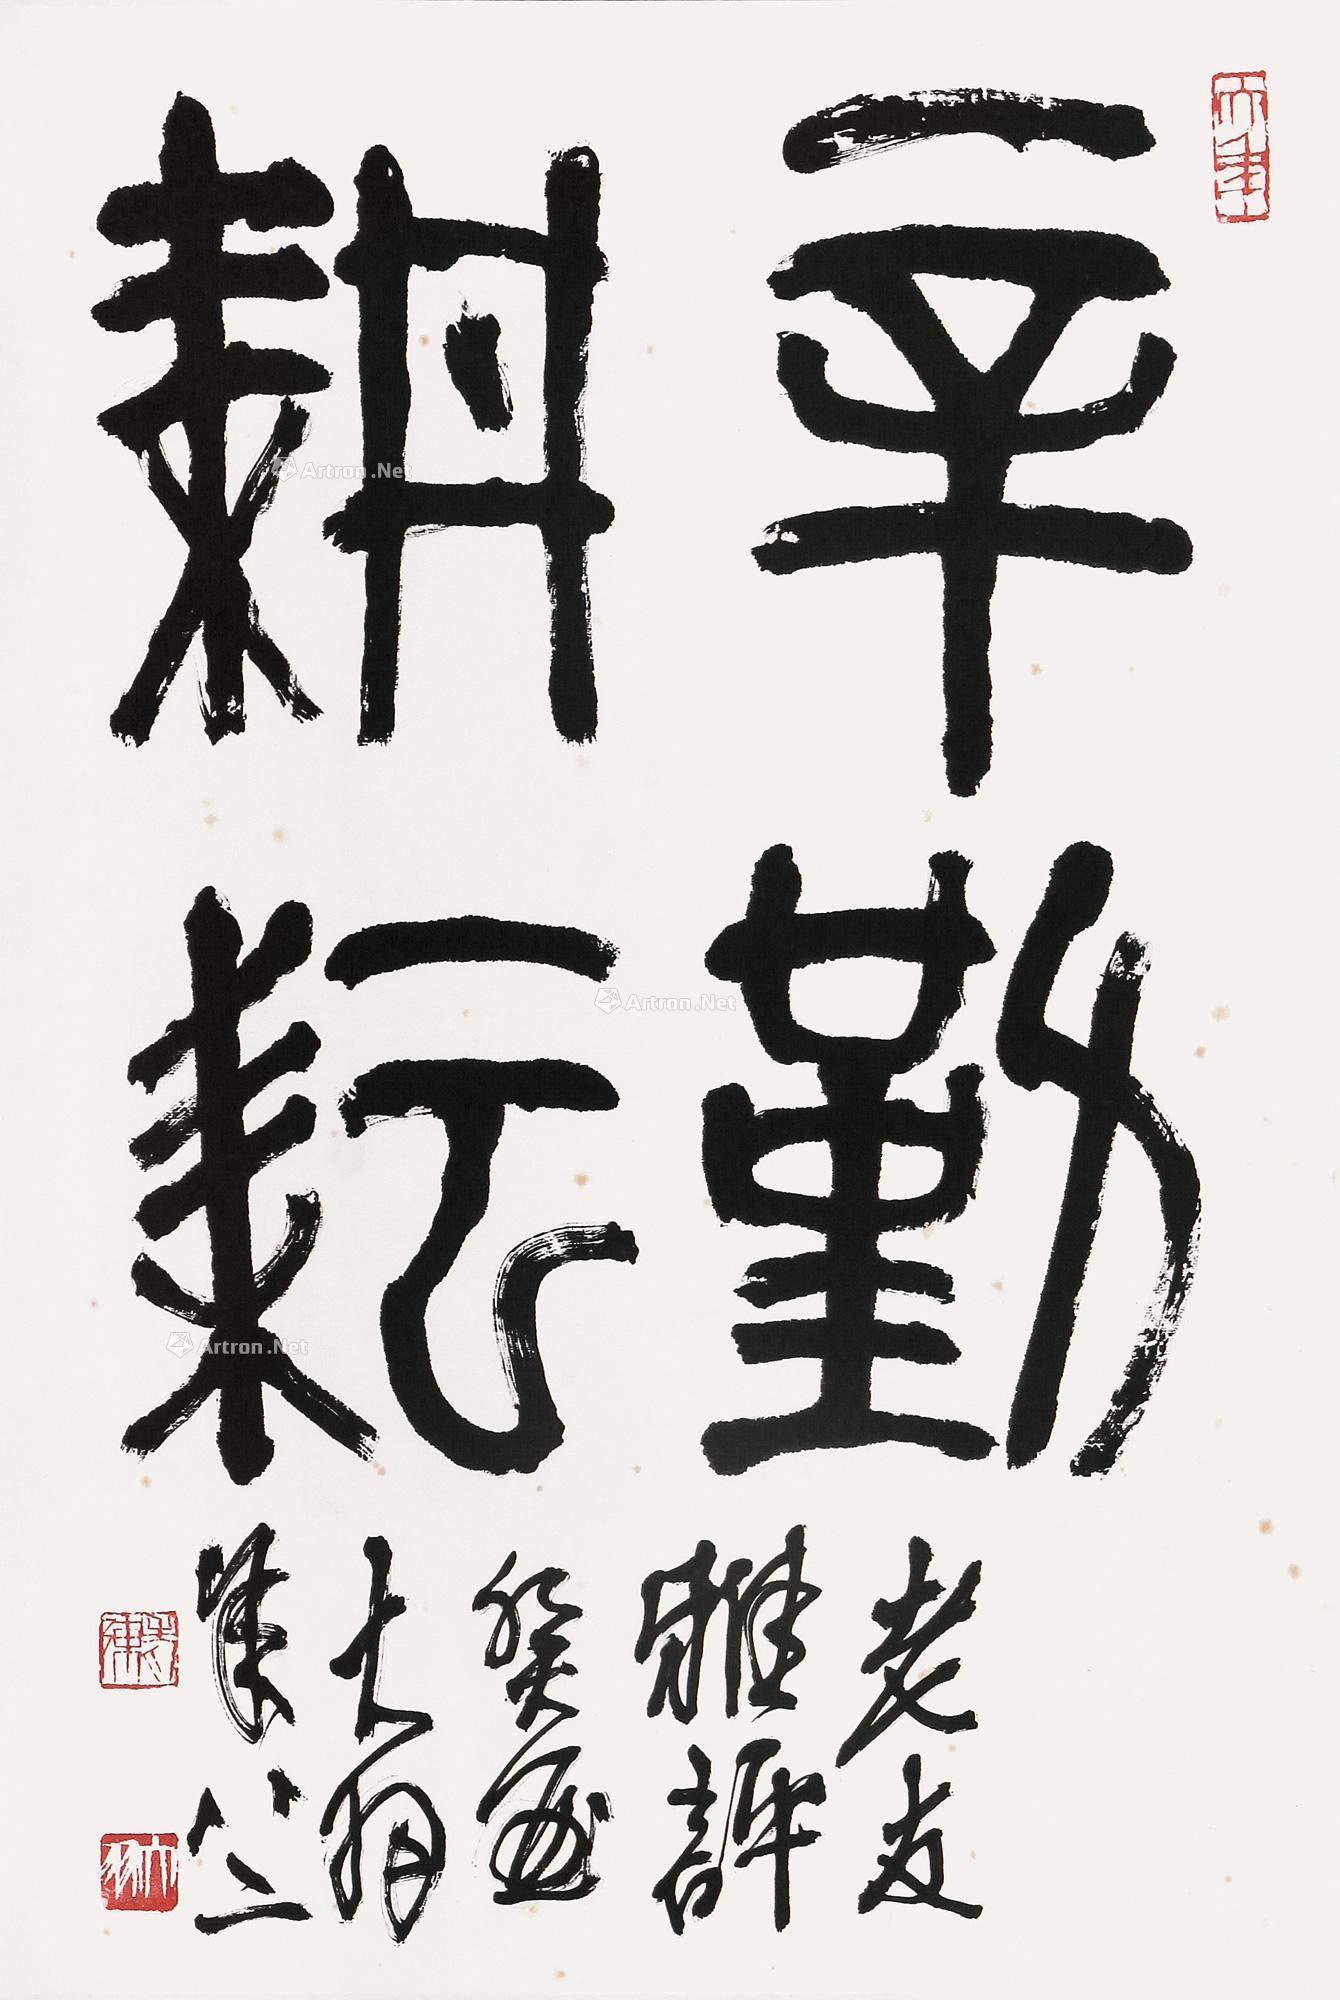 辛勤
耕耘
老友
雅評
癸酉
大羽
年八二
大年
大羽
Artron.Net
Artron.Net
Artron.Net